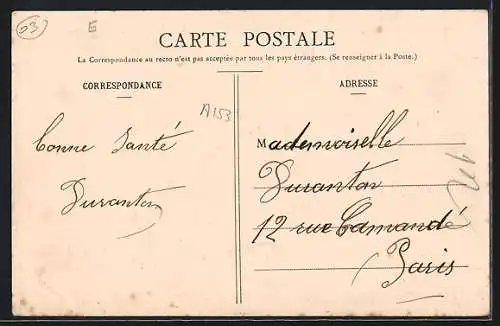 03
E
CARTE POSTALE
La Correspondance au recto n'est pas acceptée par tous les pays étrangers. (Se renseigner à la Poste.)
CORRESPONDANCE
A153
Bonne Santé
Duranton
ADRESSE
Mademoiselle
Duranton
12 rue Camandé
Paris